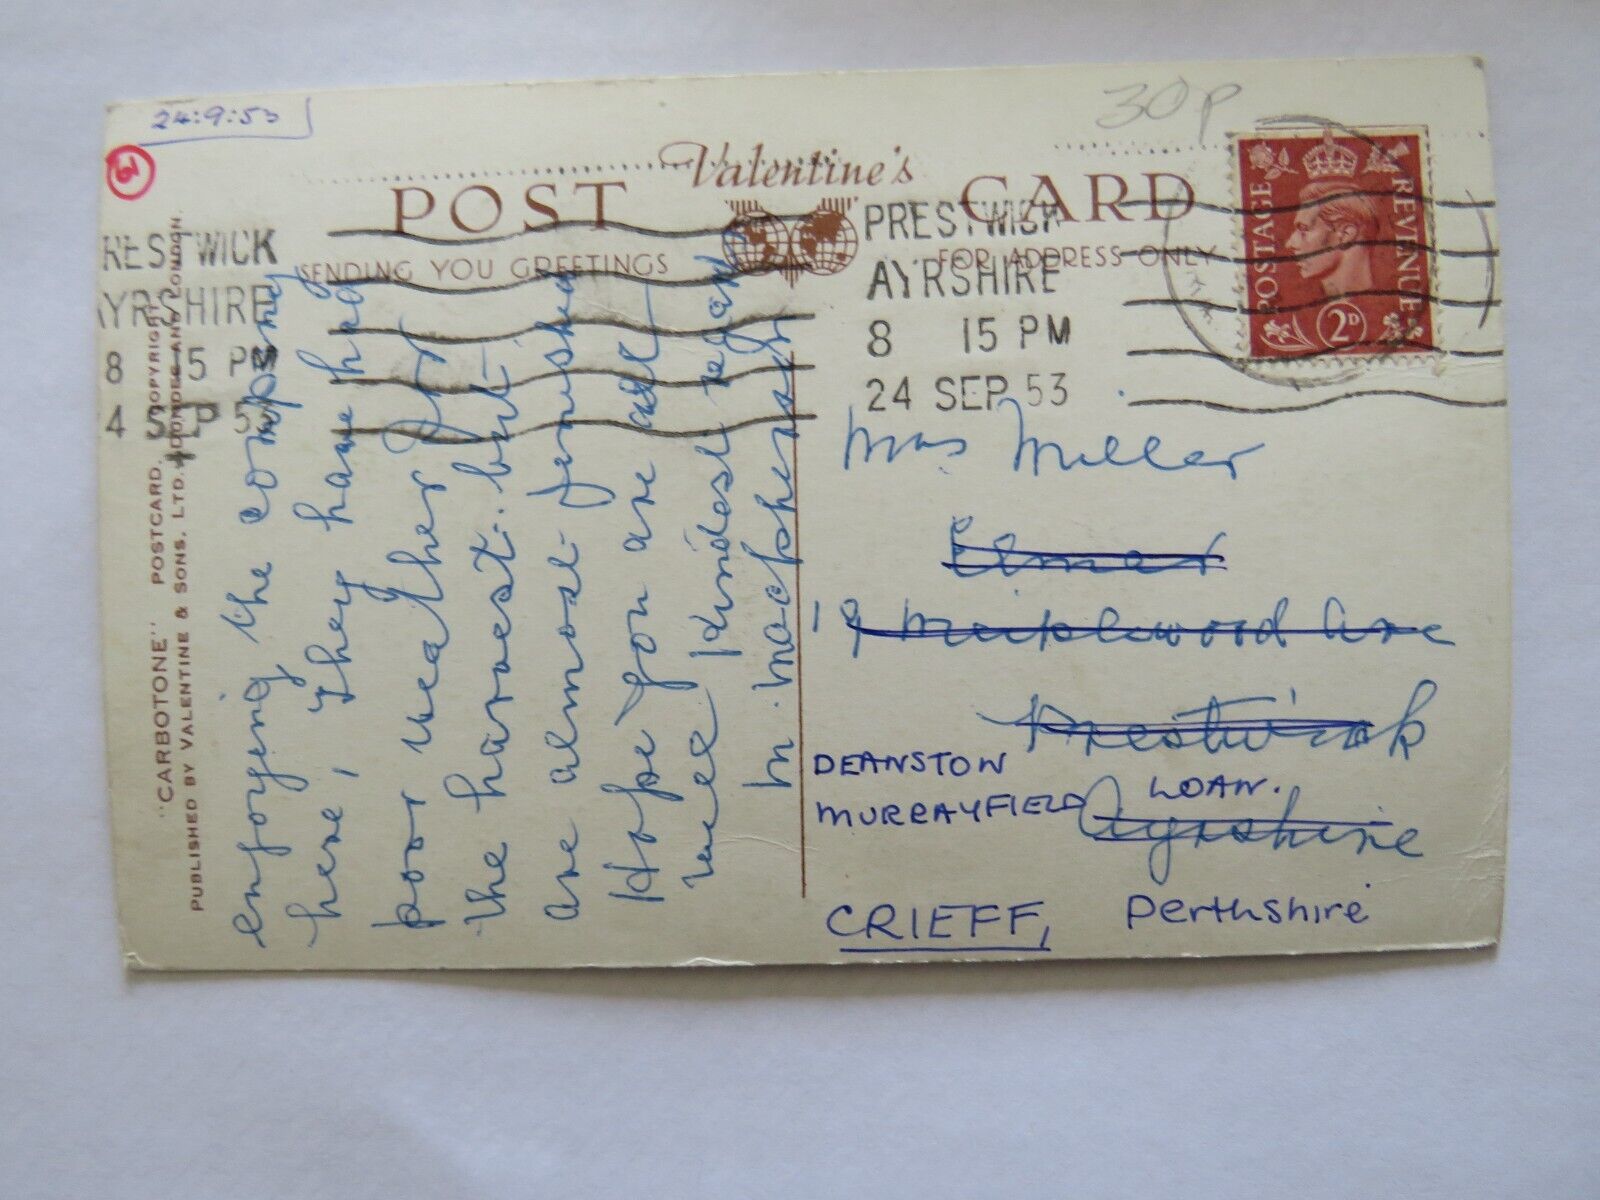 24:9:53
30p
Valentine's
POST CARD
SENDING YOU GREETINGS
FOR ADDRESS ONLY
POSTAGE REVENUE
2D
RESTWICK
AYRSHIRE
8 15 PM
4 SEP 5
PRESTWICK
AYRSHIRE
8 15 PM
24 SEP 53
"CARBOTONE" POSTCARD. COPYRIGHT
PUBLISHED BY VALENTINE & SONS, LTD. DUNDEE AND LONDON.
enjoying the company
here, They have had
poor weather for
the harvest. but
are almost finished
Hope you are all
well Kindest regards
M. Macpherson
Mrs Miller
Elmer
19 Ave
Prestwick
Ayrshire
DEANSTON
MURRAYFIELD LOAN.
CRIEFF, Perthshire